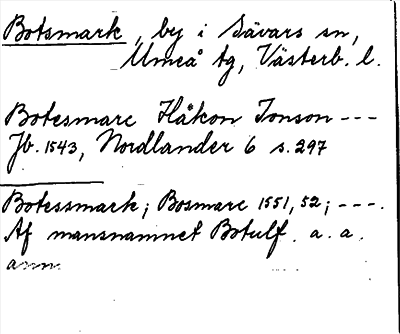 Botsmark, by i Sävars sn,
Umeå tg, Västerb. l.
Botesmarc Håkon Jonson ---
Jb. 1543, Nordlander 6 s. 297
Botessmark; Bosmarc 1551, 52; ---.
Af mansnamnet Botulf. a. a.
anm.